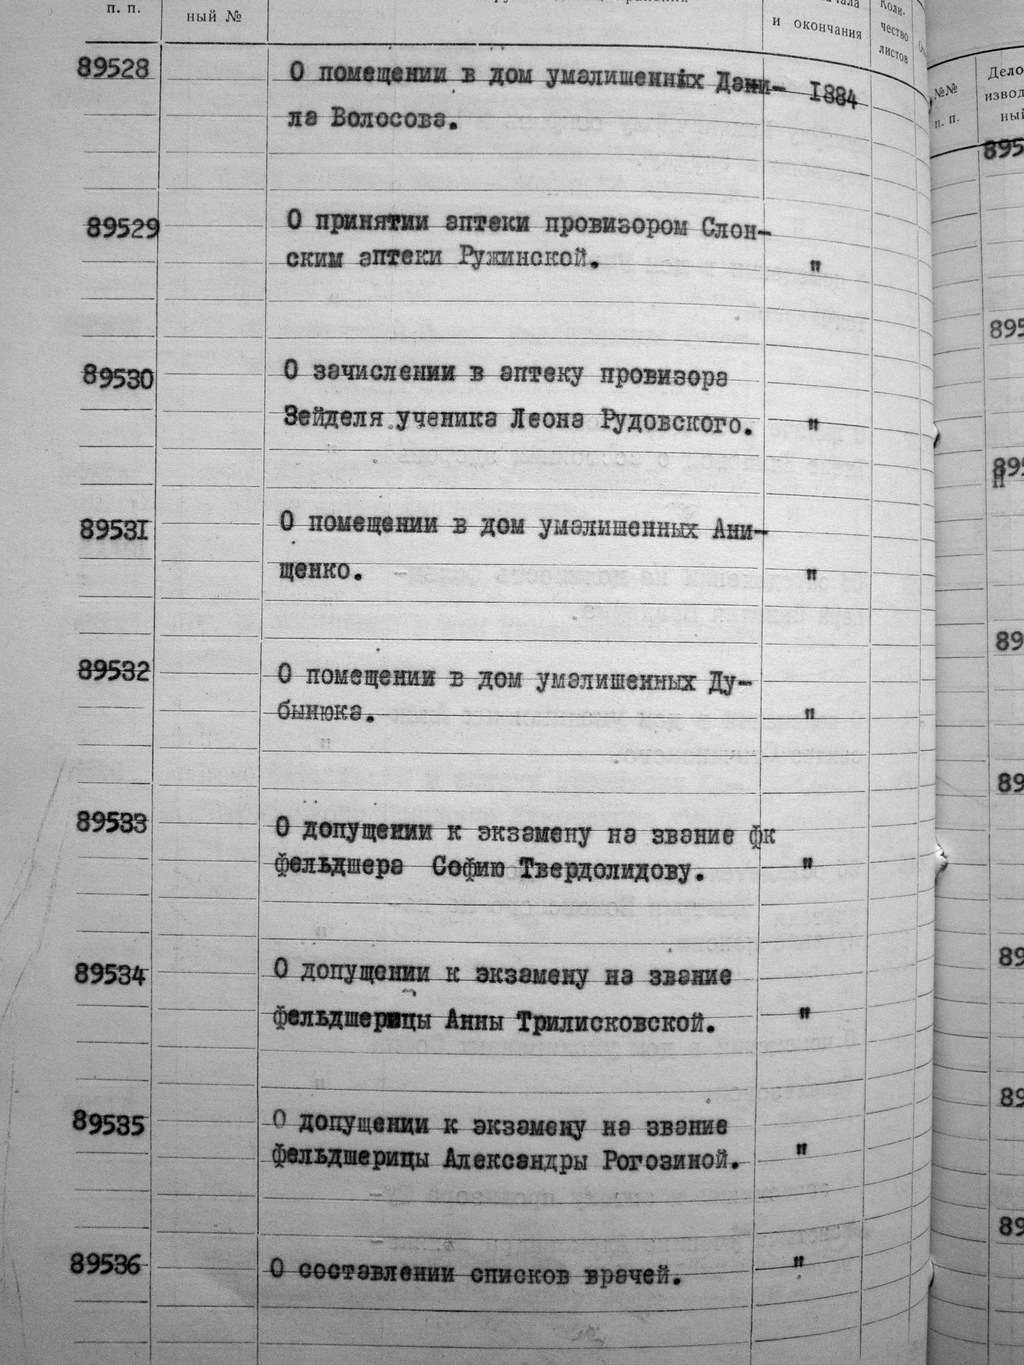 п. п.
ный №
и окончания
Коли-
чество
листов
89528 О помещении в дом умалишенных Дани- 1884
ла Волосова.
89529 О принятии аптеки провизором Слон-
ским аптеки Ружинской. "
89530 О зачислении в аптеку провизора
Зейделя ученика Леона Рудовского. "
89531 О помещении в дом умалишенных Ани-
щенко. "
89532 О помещении в дом умалишенных Ду-
бынюка. "
89533 О допущении к экзамену на звание фк
фельдшера Софию Твердолидову. "
89534 О допущении к экзамену на звание
фельдшерицы Анны Трилисковской. "
89535 О допущении к экзамену на звание
фельдшерицы Александры Рогозиной. "
89536 О составлении списков врачей. "
№№
п. п.
Дело
извод
ный
895
895
895
89
89
89
89
89